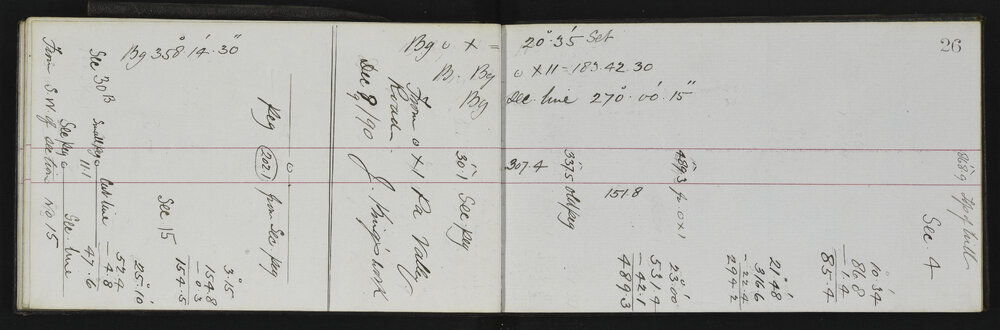 26
Bg 358° 14' 30"
From S.W of section No 15
Sec peg o Sec. line
Sec 30 B
Small peg o Cut line
111
52.4
- 4.8
47.6
25° 10'
Sec 15
3° 15
154.8
- 0.3
154.5
Peg 2021 from Sec peg
o
Dec 9/90 J. Kingswork
Road
From o X 1 Pa Valley
301 Sec peg
Bg o X = 20° 35' Set
B. Bg o X 11 = 183.42.30
Bg Sec line 270° 00' 15"
307.4
337.5 old peg
151.8
489.3 fr o X 1
23° 00'
531.4
- 42.1
489.3
21° 48'
316.6
- 22.4
294.2
10° 34'
86.8
- 1.4
85.4
Sec 4
868.9 top of hill